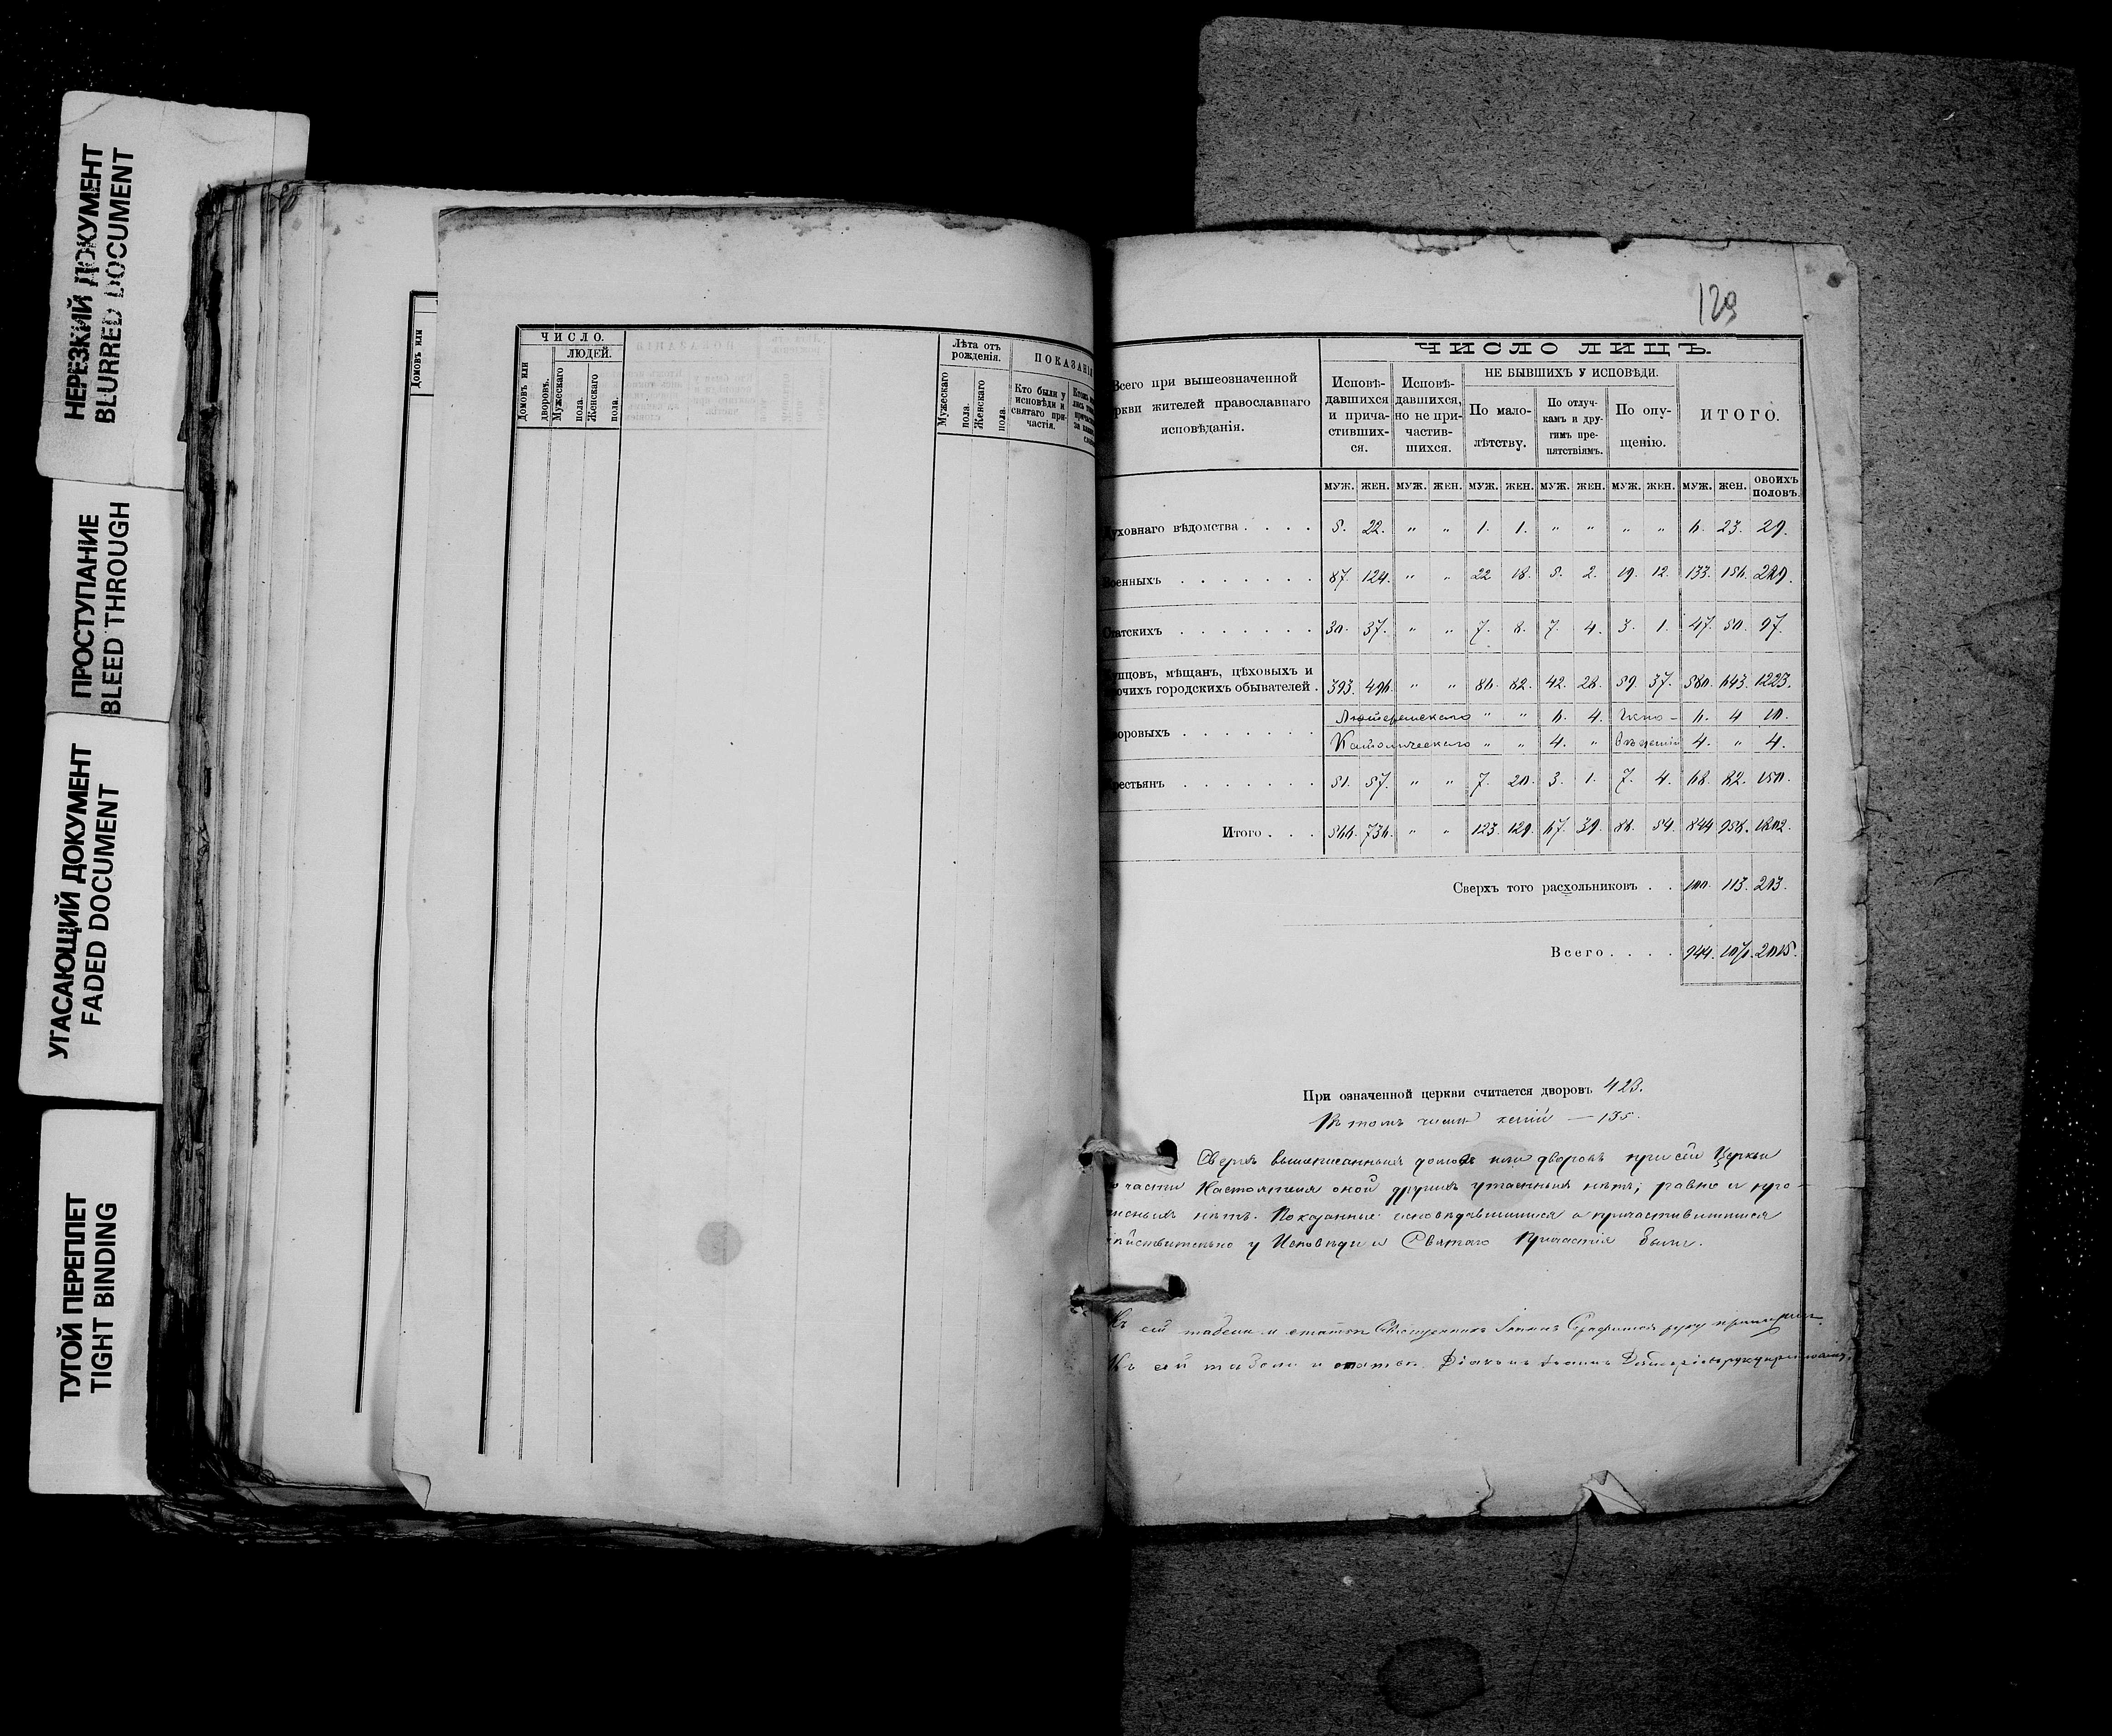 НЕРЕЗКИЙ ДОКУМЕНТ
BLURRED DOCUMENT
ПРОСТУПАНИЕ
BLEED THROUGH
УГАСАЮЩИЙ ДОКУМЕНТ
FADED DOCUMENT
ТУГОЙ ПЕРЕПЛЕТ
TIGHT BINDING
Домовъ или
ЧИСЛО.
ЛЮДЕЙ.
Домовъ или дворовъ.
Мужескаго пола.
Женскаго пола.
Лѣта отъ рожденія.
Мужескаго пола.
Женскаго пола.
ПОКАЗАНІ
Кто были у исповѣди и святаго причастія.
129
Всего при вышеозначенной
ркви жителей православнаго
исповѣданія.
ЧИСЛО ЛИЦЪ.
Исповѣдавшихся и причастившихся.
Исповѣдавшихся, но не причастившихся.
НЕ БЫВШИХЪ У ИСПОВѢДИ.
По малолѣтству.
По отлучкамъ и другимъ препятствіямъ.
По опущенію.
ИТОГО.
муж. жен. муж. жен. муж. жен. муж. жен. муж. жен. муж. жен. обоихъ половъ.
уховнаго вѣдомства . . . . 5. 22. " " 1. 1. " " " " 6. 23. 29.
военныхъ . . . . . . . 87. 124. " " 22 18. 5. 2. 19. 12. 133. 156. 289.
татскихъ . . . . . . . 30. 37. " " 7. 8. 7. 4. 3. 1. 47. 50. 97.
упцовъ, мѣщанъ, цѣховыхъ и
рочихъ городскихъ обывателей . 393. 496. " " 86. 82. 42. 28. 59. 37. 580. 643. 1223.
Лютеранскаго " " 6. 4. Испо- 6. 4 10.
воровыхъ . . . . . . .
Католическаго " " 4. " вѣданій 4. " 4.
рестьянъ . . . . . . . 51. 57. " " 7. 20. 3. 1. 7. 4. 68. 82. 150.
Итого . . . 566. 736. " " 123. 129. 67. 39. 88. 54. 844. 958. 1802.
Сверхъ того раскольниковъ . . 100. 113. 213.
Всего . . . . 944. 1071. 2015.
При означенной церкви считается дворовъ 423.
Въ томъ числѣ келій — 135.
Сверхъ вышеписанныхъ домовъ или дворовъ при сей Церкви
части настоятеля оной другихъ утаенныхъ нѣтъ; равно и про-
нѣтъ. Показанные исповѣдавшимися и причастившимися
йствительно у Исповѣди и Святаго Причастія были.
Къ сей табели и статьи Священникъ Іоаннъ руку приложилъ.
Къ сей табели и статьи Діаконъ Іоаннъ